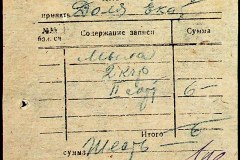 принять Доля Екат.
№№ бол. сч | Содержание записи | Сумма
Мыла
2 кгр
II сорт 6 -
Итого - 6
сумма Шесть